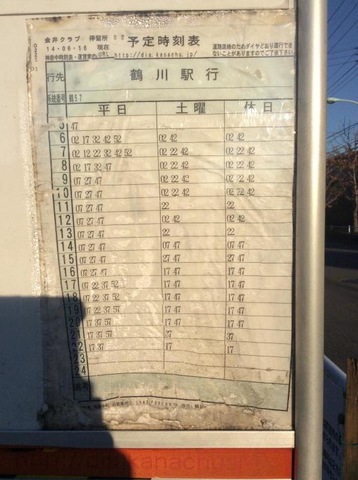 金井クラブ 停留所 予定時刻表
14-06-16 現在 http://dia.kanachu.jp/
行先 鶴川駅行
系統番号 鶴57
平日 土曜 休日
5 47
6 02 17 32 42 52 02 42 02 42
7 02 12 22 32 42 52 02 22 42 02 22 42
8 02 17 32 47 02 22 42 02 22 42
9 07 27 47 02 22 42 02 22 42
10 07 27 47 02 22 42 02 22 42
11 07 27 47 22 22
12 07 27 47 02 42 02 42
13 07 27 47 22 22
14 07 27 47 07 47 07 47
15 07 27 47 27 47 27 47
16 07 27 47 17 47 17 47
17 07 22 37 52 17 47 17 47
18 07 22 37 52 17 47 17 47
19 07 22 37 52 17 47 17 47
20 17 37 57 17 47 17 47
21 17 37 57 37 37
22 17 37 17 17
23
24